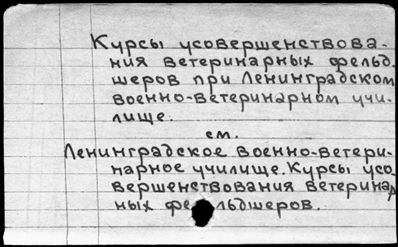 Курсы усовершенствова-
ния ветеринарных фельд.
шеров при Ленинградском
военно-ветеринарном учи-
лище.
см.
Ленинградское военно-ветери-
нарное училище. Курсы усо-
вершенствования ветеринар
ных фельдшеров.